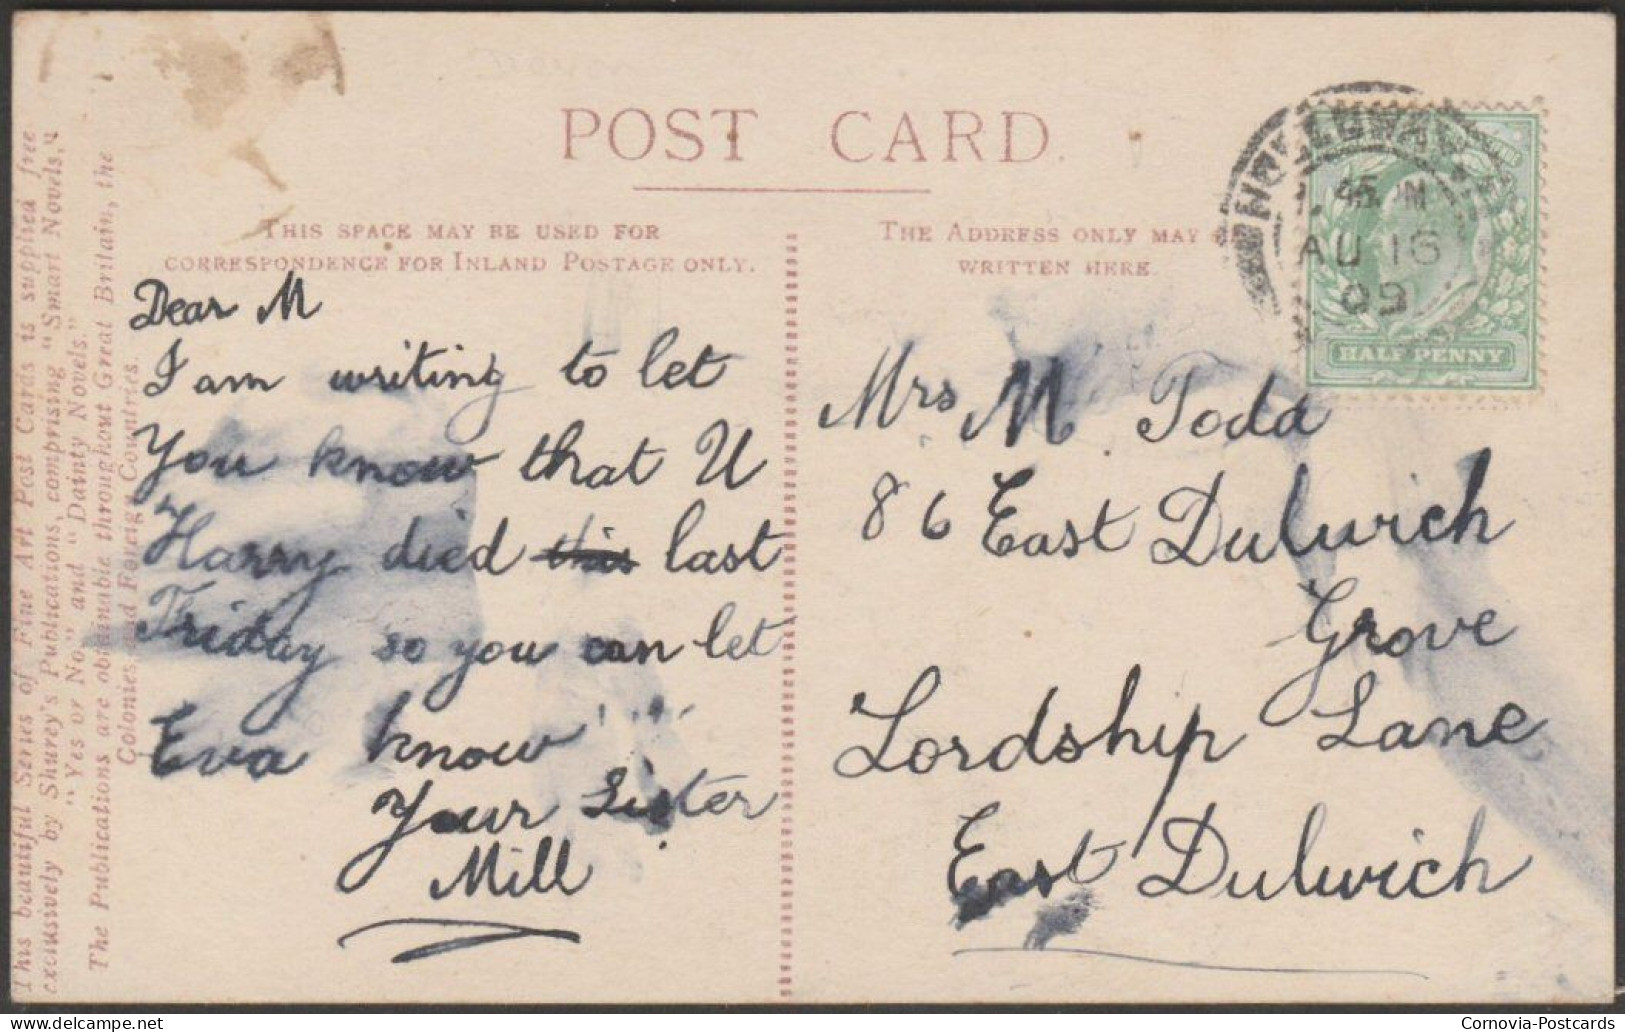 POST CARD.
THIS SPACE MAY BE USED FOR
CORRESPONDENCE FOR INLAND POSTAGE ONLY.
THE ADDRESS ONLY MAY
WRITTEN HERE
This beautiful Series of Fine Art Post Cards is supplied free
exclusively by Shurey's Publications, comprising "Smart Novels,"
"Yes or No," and "Dainty Novels."
The Publications are obtainable throughout Great Britain, the
Colonies and Foreign Countries.
Dear M
I am writing to let
You know that U
Harry died this last
Friday so you can let
Eva know
Your Sister
Mill
Mrs M Todd
86 East Dulwich
Grove
Lordship Lane
East Dulwich
AU 16
09
HALF PENNY
Cornovia-Postcards
delcampe.net